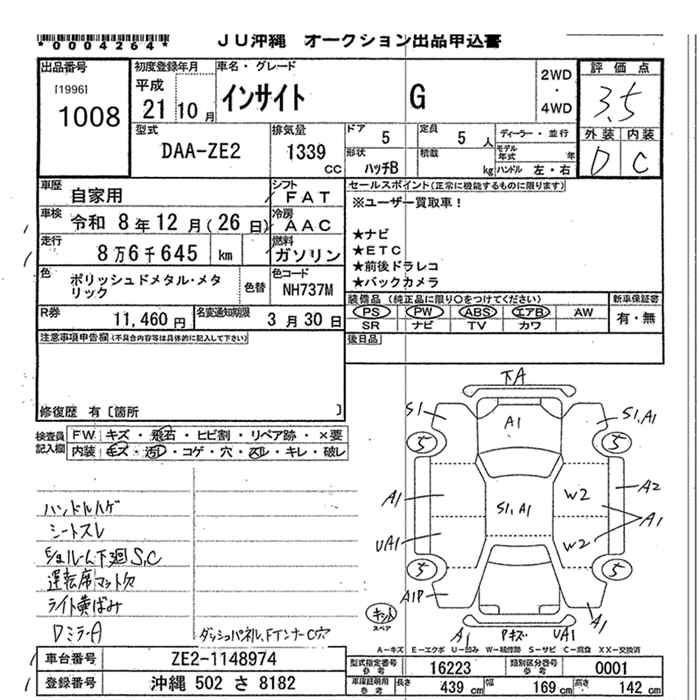 *0004264*
JU沖縄 オークション出品申込書
出品番号
[1996]
1008
初度登録年月
平成
21 10 月
車名・グレード
インサイト G
2WD
・
4WD
評価点
3.5
外装 内装
D C
型式
DAA-ZE2
排気量
1339
CC
ドア
5
定員
5 人
ディーラー・並行
形状
ハッチB
積載
kg
モデル年式 年
ハンドル 左・右
車歴
自家用
シフト
FAT
車検
令和 8 年 12 月 ( 26 日)
冷房
AAC
走行
8 万 6 千 645 km
燃料
ガソリン
色
ポリッシュドメタル・メタリック
色替
色コード
NH737M
R券
11,460 円
名変通知期限
3 月 30 日
セールスポイント(正常に機能するものに限ります)
※ユーザー買取車！
★ナビ
★ETC
★前後ドラレコ
★バックカメラ
装備品 (純正品に限り○をつけてください)
新車保証書
PS PW ABS エアB AW
SR ナビ TV カワ
有・無
後日品
注意事項申告欄(不具合内容等は具体的に記入して下さい)
修復歴 有〔箇所 〕
検査員記入欄
FW キズ・飛石・ヒビ割・リペア跡・×要
内装 キズ・汚レ・コゲ・穴・スレ・キレ・破レ
ハンドルハゲ
シートスレ
下廻S,C
運転席マット欠
ライト黄ばみ
DミラーA
ダッシュパネル、FインナーC穴
下A
S1
A1
S1,A1
5
5
A1
S1,A1
W2
A2
A1
UA1
W2
5
5
A1P
A1
キット
スペア
A1
Pキズ
UA1
A－キズ E－エクボ U－凹み W－補修跡 S－サビ C－腐食 XX－交換済
車台番号
ZE2-1148974
登録番号
沖縄 502 さ 8182
型式指定番号
参考
16223
類別区分番号
参考
0001
車庫証明用
参考
長さ 439 cm
幅 169 cm
高さ 142 cm